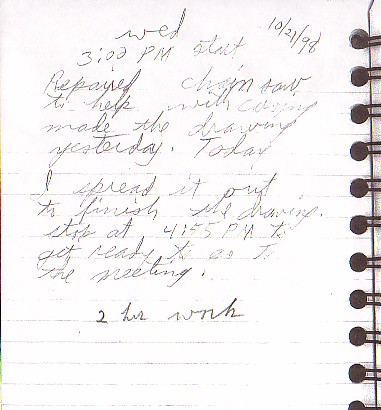 wed 10/21/98
3:02 PM start
Repaired chain saw
to help with
made the drawing
yesterday. Today
I spread it out
to finish the drawing.
stop at 4:55 PM to
get ready to go to
the meeting.
2 hr work